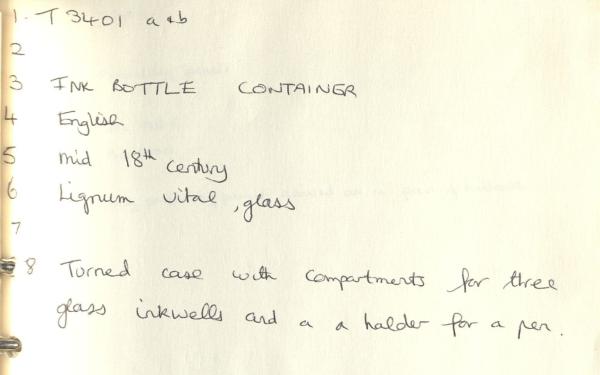 1. T 3401 a & b
2
3 INK BOTTLE CONTAINER
4 English
5 mid 18th century
6 Lignum vitae, glass
7
8 Turned case with compartments for three
glass inkwells and a a holder for a pen.